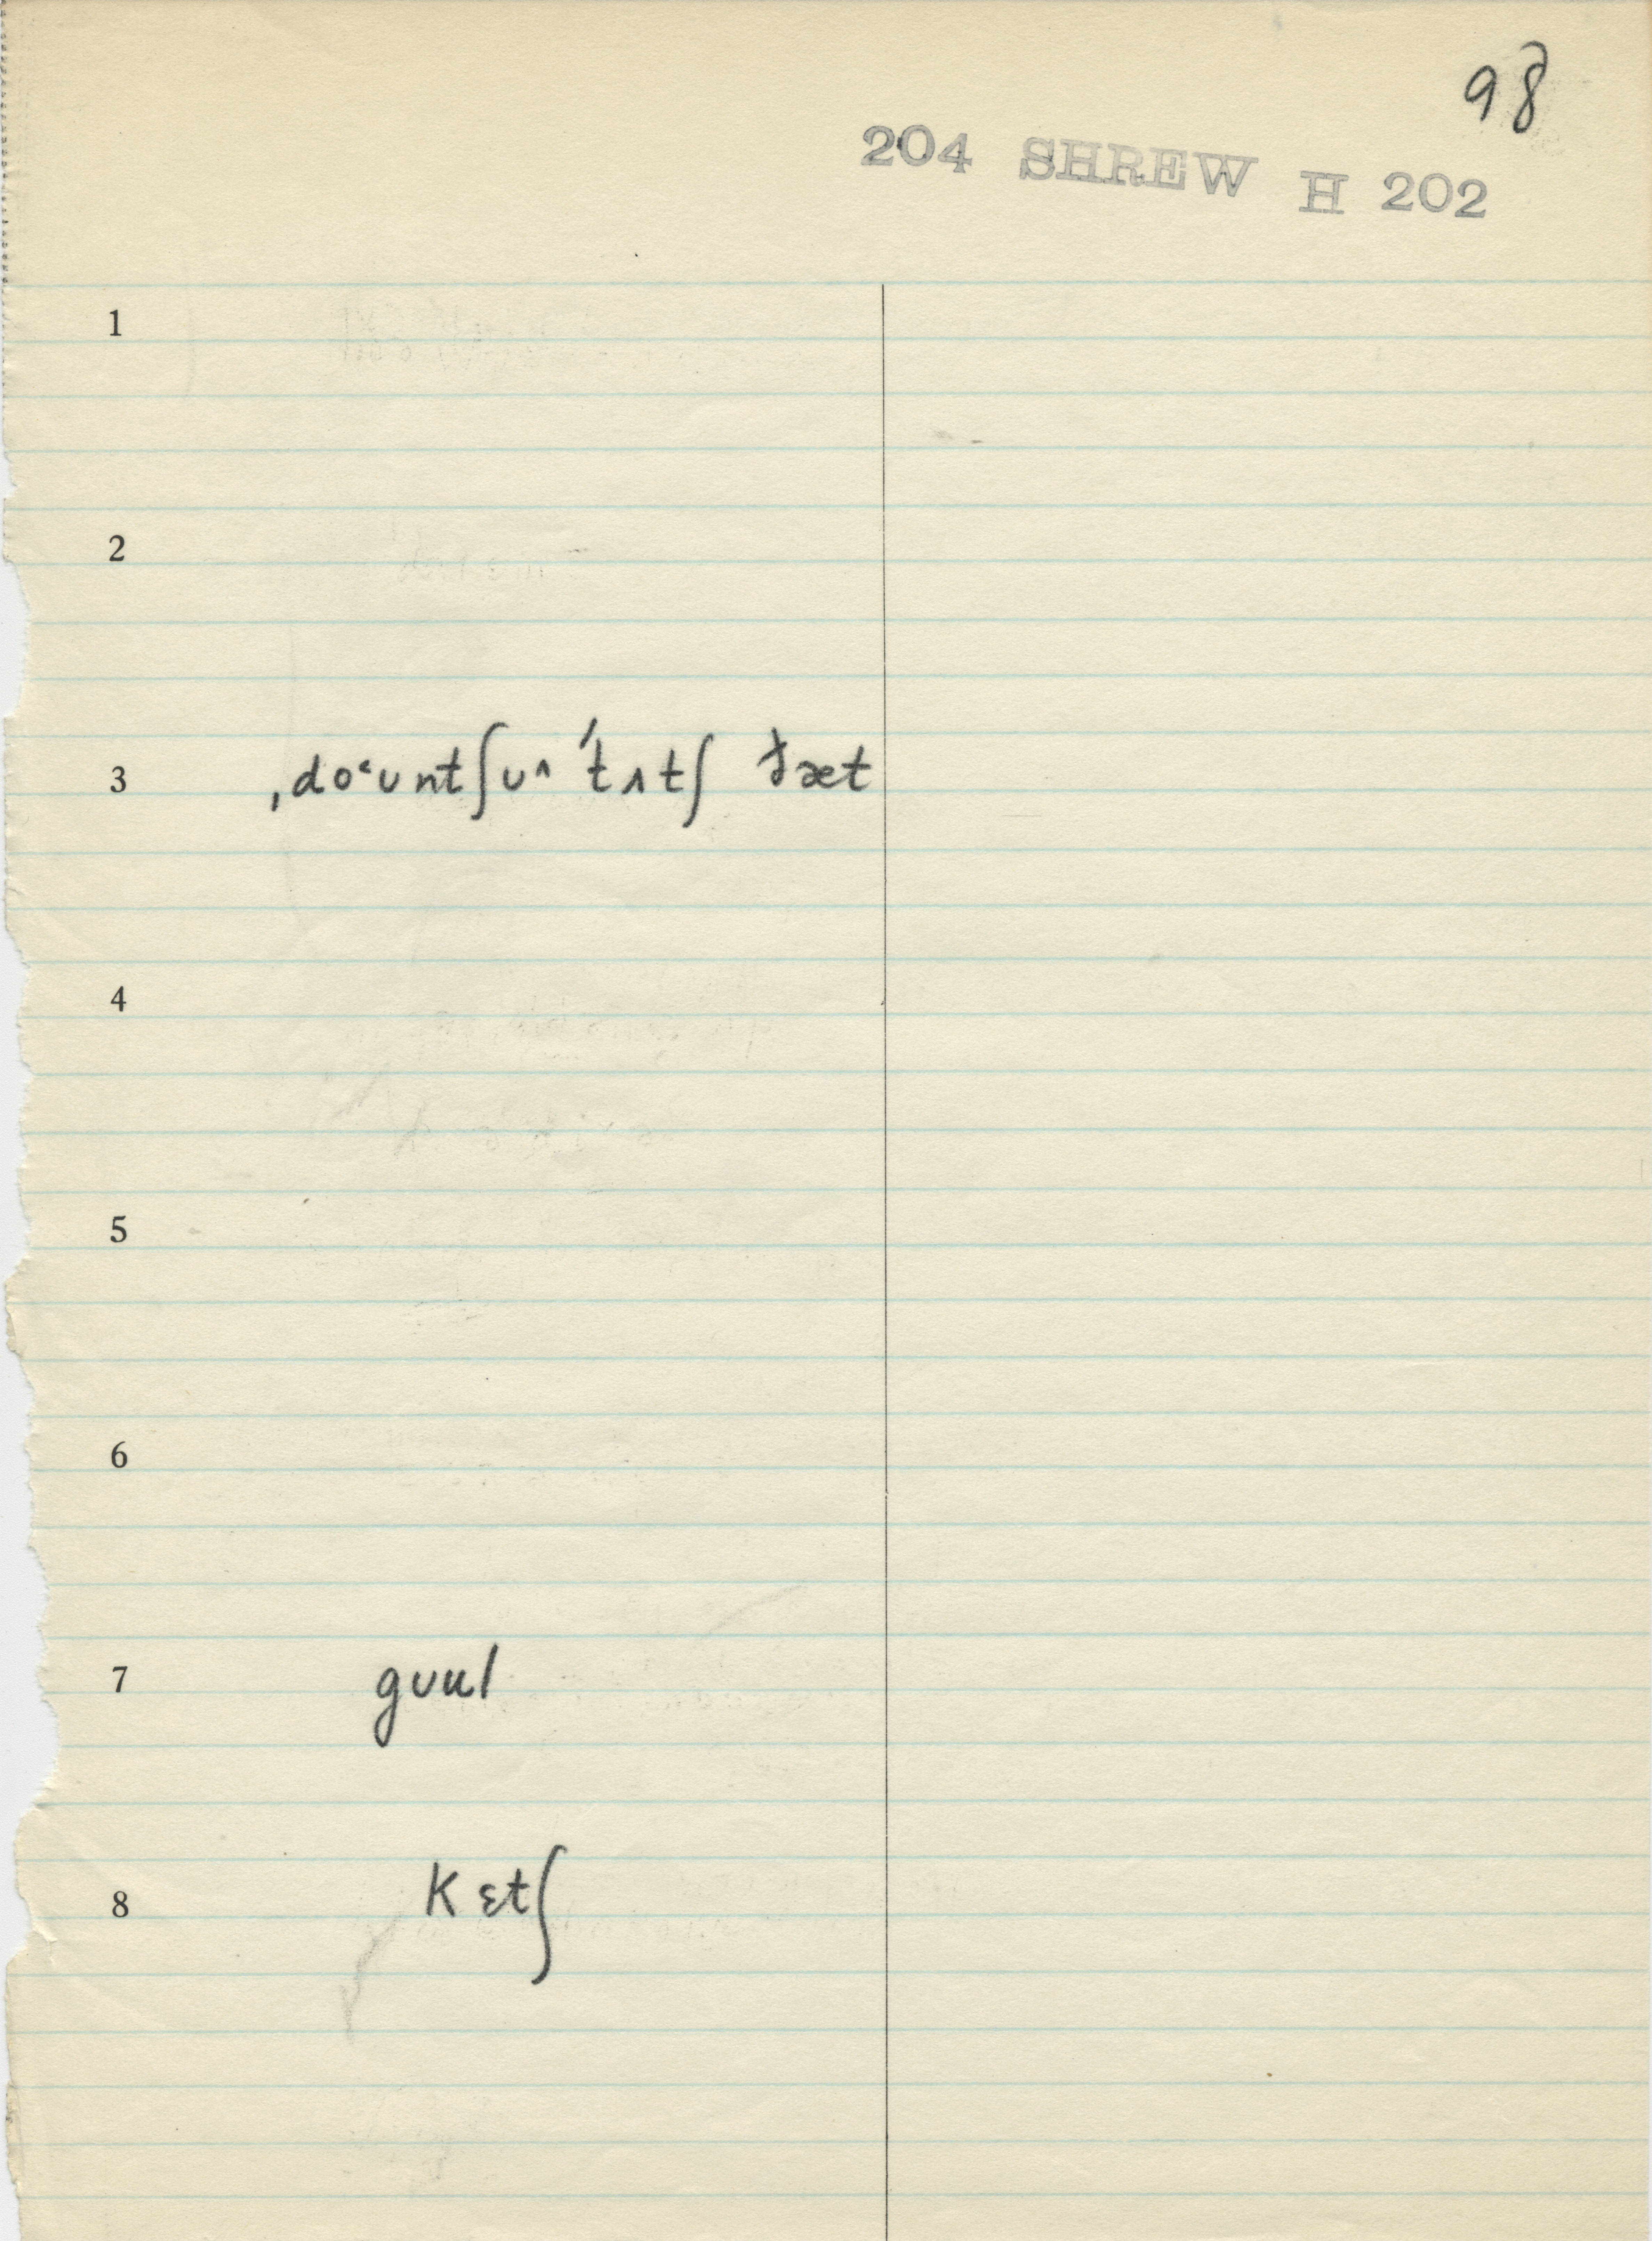 98
204 SHREW H 202
1
2
3 ˌdo˂ʊntʃʊ^ ˈtʌtʃ ðæt
4
5
6
7 gʊul
8 kɛtʃ